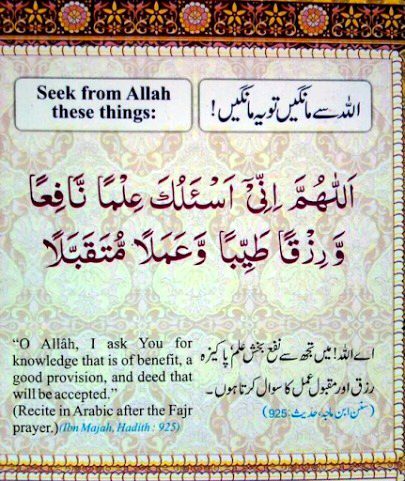 Seek from Allah
these things:
اللہ سے مانگیں تو یہ مانگیں!
اَللّٰهُمَّ اِنِّیْ اَسْئَلُكَ عِلْمًا نَّافِعًا
وَّ رِزْقًا طَیِّبًا وَّعَمَلًا مُّتَقَبَّلًا
"O Allâh, I ask You for
knowledge that is of benefit, a
good provision, and deed that
will be accepted."
(Recite in Arabic after the Fajr
prayer.) (Ibn Majah, Hadith : 925)
اے اللہ! میں تجھ سے نفع بخش علم، پاکیزہ
رزق اور مقبول عمل کا سوال کرتا ہوں۔
(سنن ابن ماجہ، حدیث: 925)